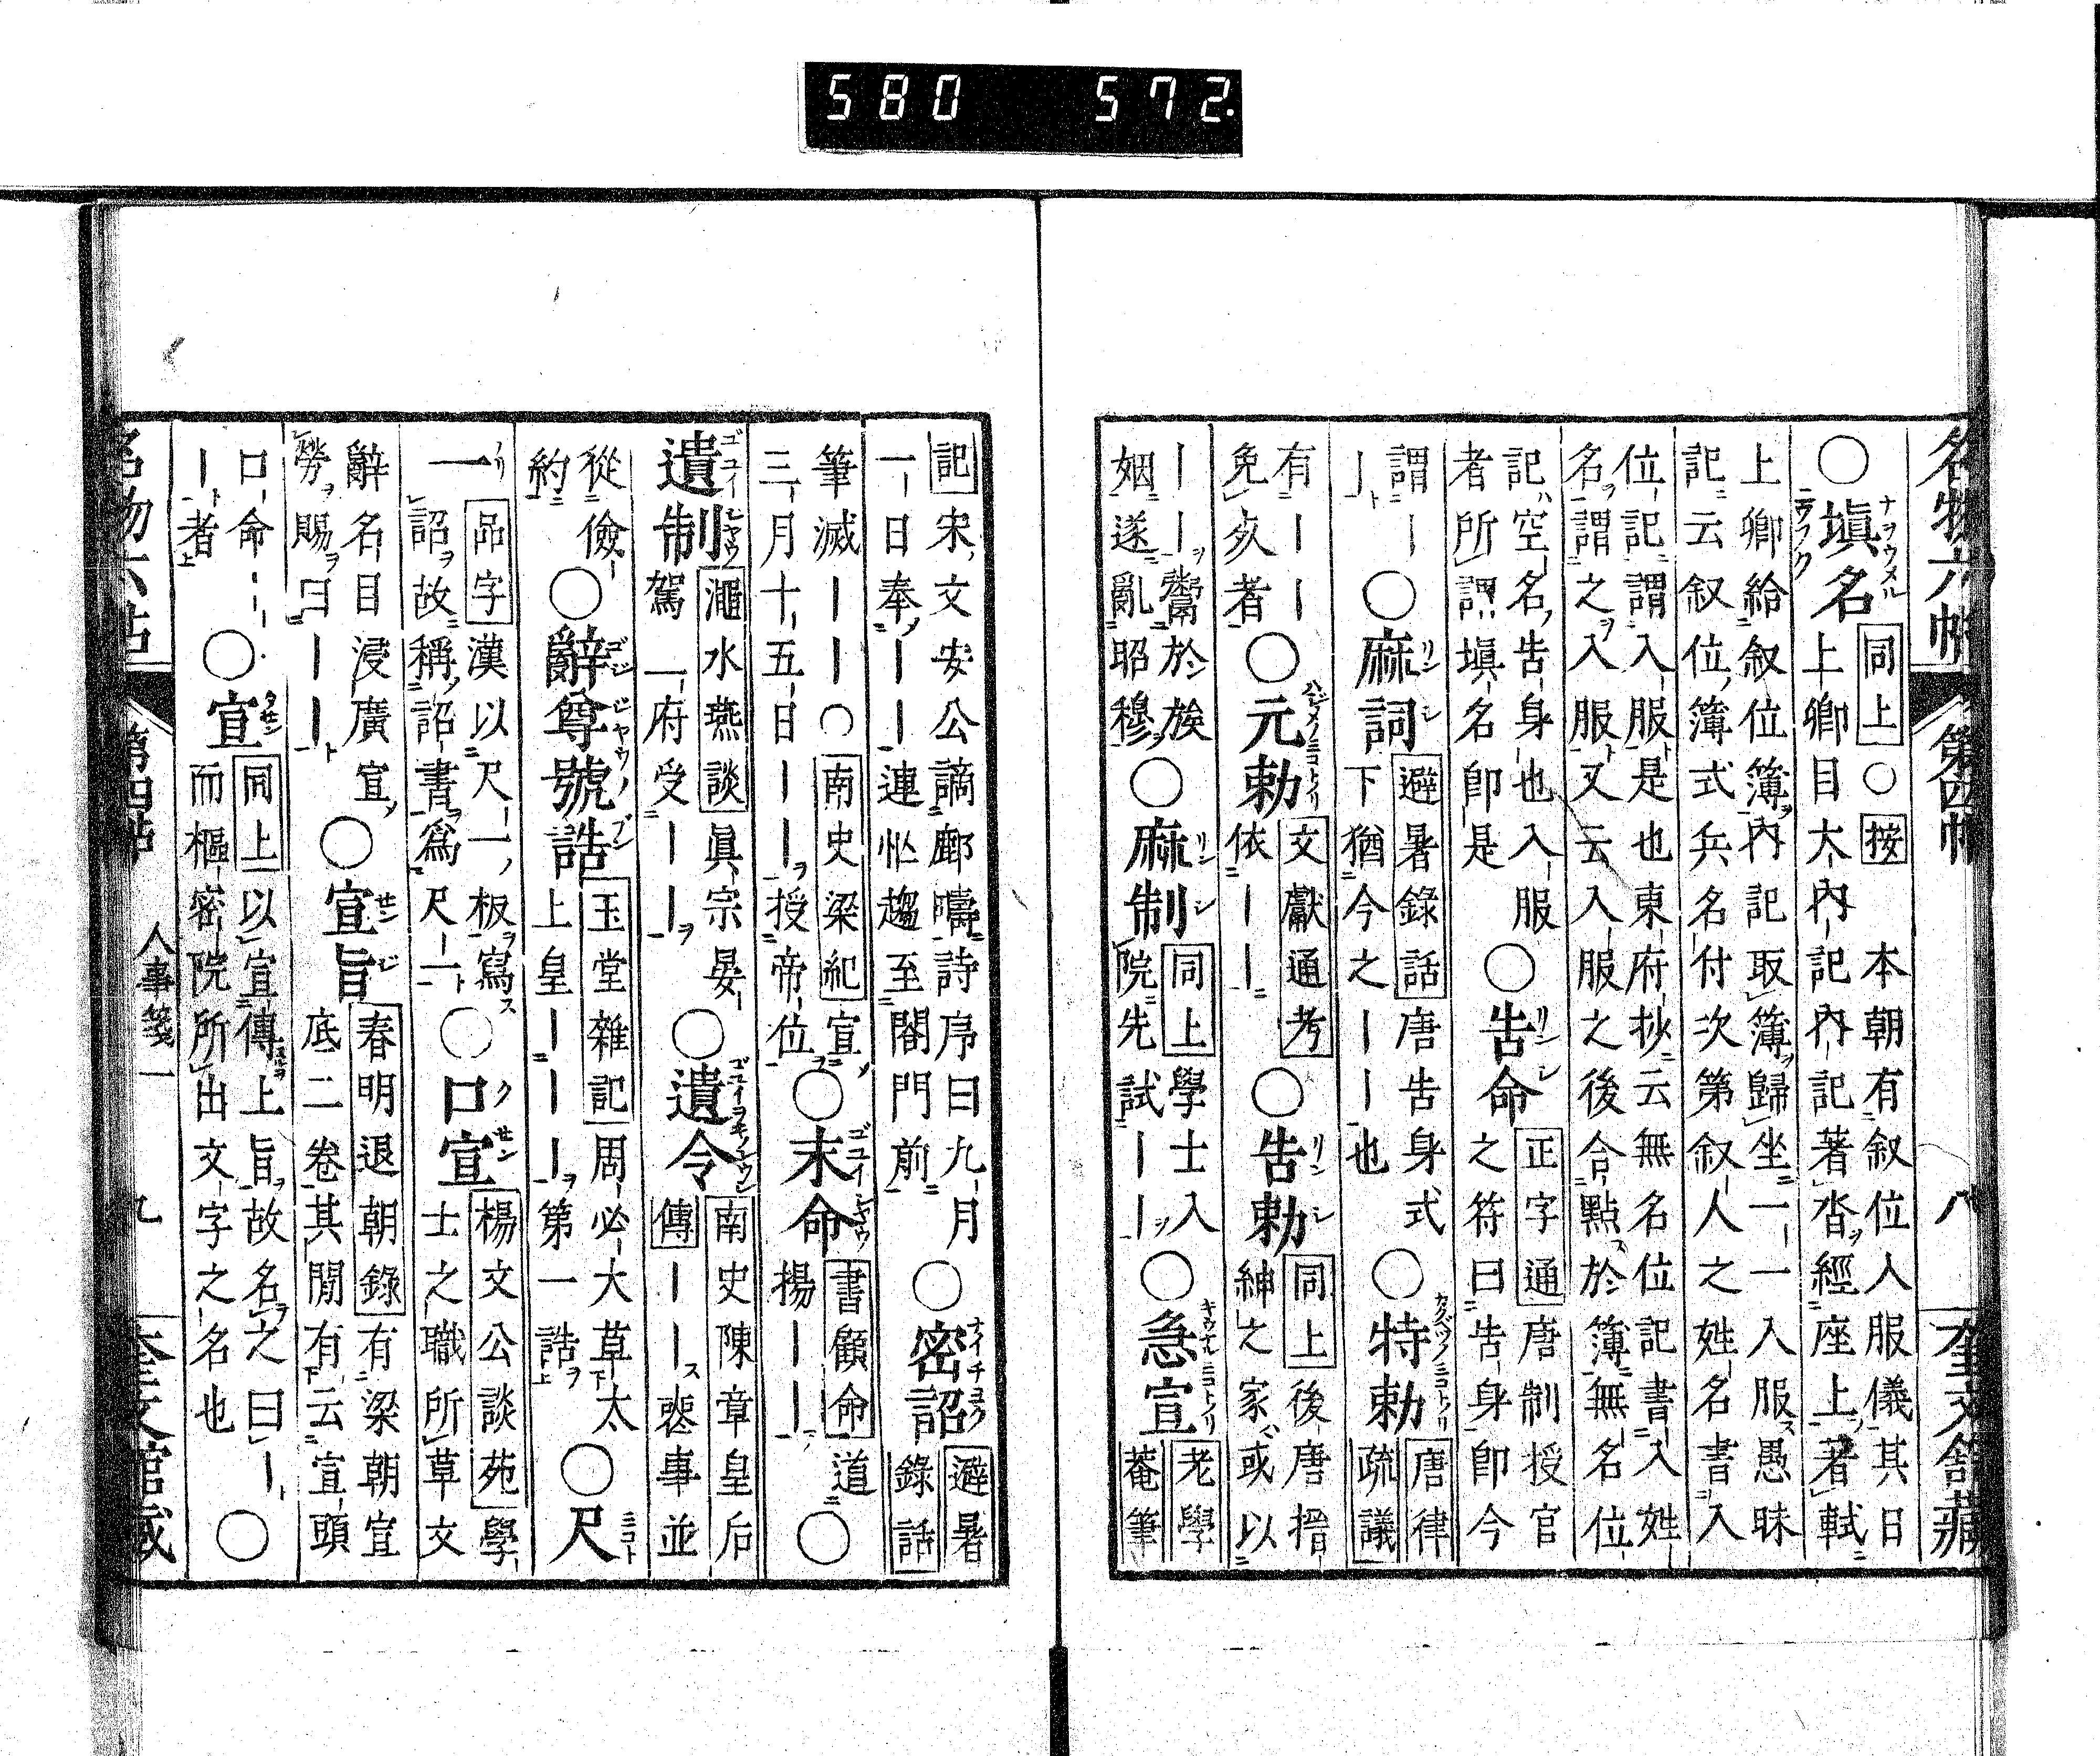 名物六帖 第四帖 八 奎文館藏
○塡名 同上 ○ 按 本朝有叙位入服儀其日
上卿目大內記內記著沓經座上著軾
上卿給叙位簿內記取簿歸坐一一入服愚昧
記云叙位簿式兵名付次第叙人之姓名書入
位記謂入服是也東府抄云無名位記書入姓
名謂之入服又云入服之後合點於簿無名位
記空名告身也入服
者所謂塡名卽是
○告命 正字通唐制授官
之符曰告身卽今
謂丨
丨
○麻詞 避暑錄話唐告身式
下猶今之丨丨也
○特勅 唐律
疏議
有丨丨丨
免
者
○元勅 文獻通考
依丨丨
○告勅 同上後唐搢
紳之家或以
丨丨鬻於族
姻遂亂昭穆
○麻制 同上學士入
院先試丨丨
○急宣 老學
菴筆
記宋文安公謫鄜疇詩序曰九月
一日奉丨丨丨連忙趨至閤門前
○密詔 避暑
錄話
筆滅丨丨○南史梁紀宣
三月十五日丨丨授帝位
○末命 書顧命道
揚丨丨
○
遺制 澠水燕談眞宗晏
駕一府受丨丨
○遺令 南史陳章皇后
傳丨丨喪事並
從儉
約
○辭尊號誥 玉堂雜記周必大草太
上皇丨丨丨丨第一誥
○尺
一 品字漢以尺一板寫
詔故稱詔書爲尺一
○口宣 楊文公談苑學
士之職所草文
辭名目浸廣宣
勞賜曰丨丨
○宣旨 春明退朝錄有梁朝宣
底二卷其閒有云宣頭
口命
丨者
○宣 同上以宣傳上旨故名之曰丨
而樞密院所出文字之名也
○
名物六帖 第四帖 人事箋一 九 奎文館藏
580 572.